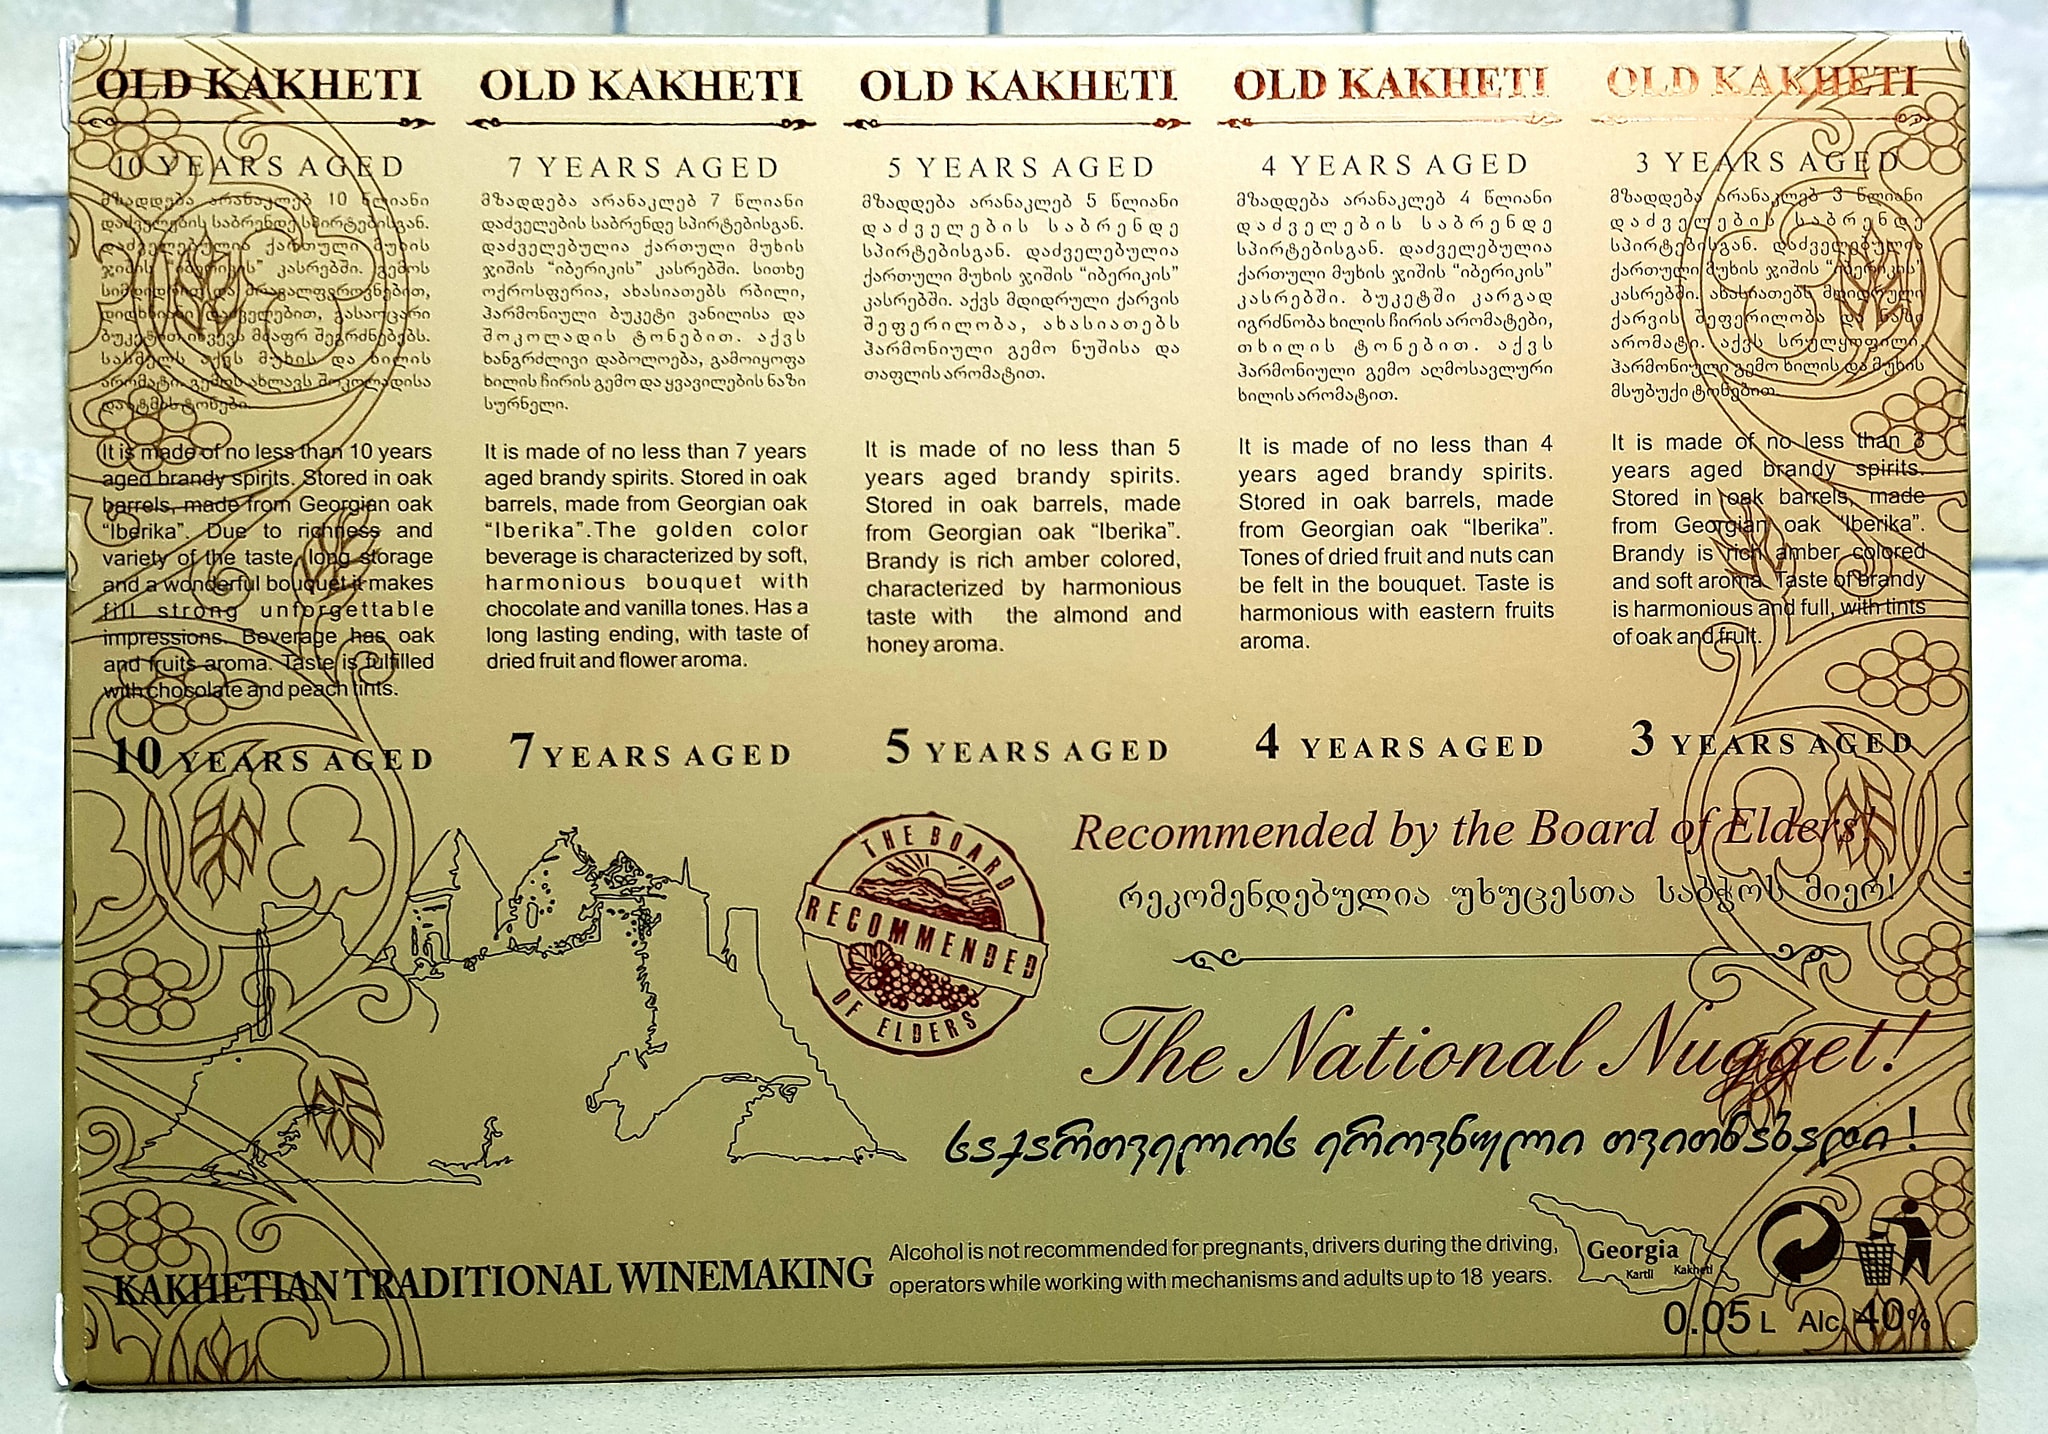 OLD KAKHETI
10 YEARS AGED
მზადდება არანაკლებ 10 წლიანი
დაძველების საბრენდე სპირტებისგან.
დაძველებულია ქართული მუხის
ჯიშის “იბერიკის” კასრებში. გემოს
სიმდიდრით და მრავალფეროვნებით,
დიდხნიანი დაძველებით, გასაოცარი
ბუკეტით იწვევს მძაფრ შეგრძნებებს.
სასმელს აქვს მუხის და ხილის
არომატი. გემოს ახლავს შოკოლადისა
და ატმის ტონები.
It is made of no less than 10 years
aged brandy spirits. Stored in oak
barrels, made from Georgian oak
“Iberika”. Due to richness and
variety of the taste, long storage
and a wonderful bouquet it makes
fill strong unforgettable
impressions. Beverage has oak
and fruits aroma. Taste is fulfilled
with chocolate and peach tints.
10 YEARS AGED
OLD KAKHETI
7 YEARS AGED
მზადდება არანაკლებ 7 წლიანი
დაძველების საბრენდე სპირტებისგან.
დაძველებულია ქართული მუხის
ჯიშის “იბერიკის” კასრებში. სითხე
ოქროსფერია, ახასიათებს რბილი,
ჰარმონიული ბუკეტი ვანილისა და
შოკოლადის ტონებით. აქვს
ხანგრძლივი დაბოლოება, გამოიყოფა
ხილის ჩირის გემო და ყვავილების ნაზი
სურნელი.
It is made of no less than 7 years
aged brandy spirits. Stored in oak
barrels, made from Georgian oak
“Iberika”.The golden color
beverage is characterized by soft,
harmonious bouquet with
chocolate and vanilla tones. Has a
long lasting ending, with taste of
dried fruit and flower aroma.
7 YEARS AGED
OLD KAKHETI
5 YEARS AGED
მზადდება არანაკლებ 5 წლიანი
დაძველების საბრენდე
სპირტებისგან. დაძველებულია
ქართული მუხის ჯიშის “იბერიკის”
კასრებში. აქვს მდიდრული ქარვის
შეფერილობა, ახასიათებს
ჰარმონიული გემო ნუშისა და
თაფლის არომატით.
It is made of no less than 5
years aged brandy spirits.
Stored in oak barrels, made
from Georgian oak “Iberika”.
Brandy is rich amber colored,
characterized by harmonious
taste with the almond and
honey aroma.
5 YEARS AGED
OLD KAKHETI
4 YEARS AGED
მზადდება არანაკლებ 4 წლიანი
დაძველების საბრენდე
სპირტებისგან. დაძველებულია
ქართული მუხის ჯიშის “იბერიკის”
კასრებში. ბუკეტში კარგად
იგრძნობა ხილის ჩირის არომატები,
თხილის ტონებით. აქვს
ჰარმონიული გემო აღმოსავლური
ხილის არომატით.
It is made of no less than 4
years aged brandy spirits.
Stored in oak barrels, made
from Georgian oak “Iberika”.
Tones of dried fruit and nuts can
be felt in the bouquet. Taste is
harmonious with eastern fruits
aroma.
4 YEARS AGED
OLD KAKHETI
3 YEARS AGED
მზადდება არანაკლებ 3 წლიანი
დაძველების საბრენდე
სპირტებისგან. დაძველებულია
ქართული მუხის ჯიშის “იბერიკის”
კასრებში. ახასიათებს მდიდრული
ქარვის შეფერილობა და ნაზი
არომატი. აქვს სრულყოფილი,
ჰარმონიული გემო ხილის და მუხის
მსუბუქი ტონებით.
It is made of no less than 3
years aged brandy spirits.
Stored in oak barrels, made
from Georgian oak “Iberika”.
Brandy is rich amber colored
and soft aroma. Taste of brandy
is harmonious and full, with tints
of oak and fruit.
3 YEARS AGED
THE BOARD
RECOMMENDED
OF ELDERS
Recommended by the Board of Elders!
რეკომენდებულია უხუცესთა საბჭოს მიერ!
The National Nugget!
საქართველოს ეროვნული თვითნაბადი !
KAKHETIAN TRADITIONAL WINEMAKING
Alcohol is not recommended for pregnants, drivers during the driving,
operators while working with mechanisms and adults up to 18 years.
Georgia
Kartli
Kakheti
0.05 L Alc. 40%